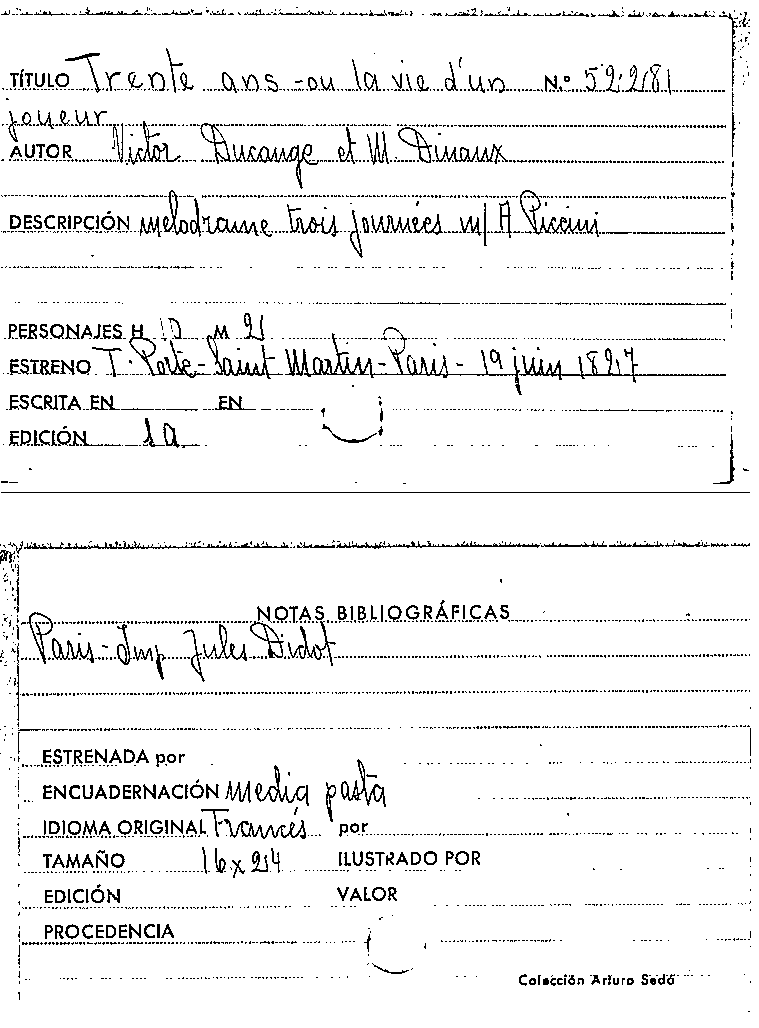 TÍTULO Trente ans -ou la vie d'un N.º 52281
joueur
AUTOR Victor Ducange et M. Dinaux
DESCRIPCIÓN melodrame trois journées m/ A Piccini
PERSONAJES H M 2
ESTRENO T. Porte-Saint Martin-Paris- 19 juin 1827
ESCRITA EN EN
EDICIÓN 1a
NOTAS BIBLIOGRÁFICAS
Paris-Imp Jules Didot
ESTRENADA por
ENCUADERNACIÓN media pasta
IDIOMA ORIGINAL Francés por
TAMAÑO 16x24 ILUSTRADO POR
EDICIÓN VALOR
PROCEDENCIA
Colección Arturo Sedó